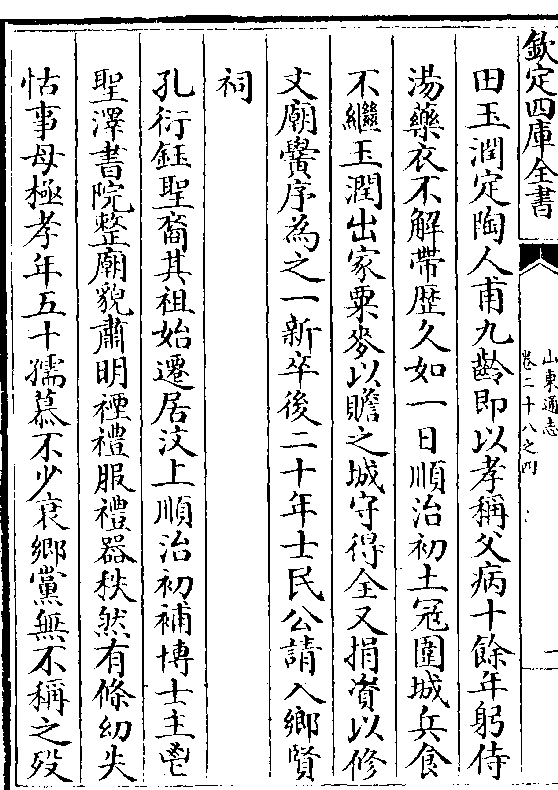 欽定四庫全書
山東通志
卷二十八之四
一
田玉潤定陶人甫九齡即以孝稱父病十餘年躬侍
湯藥衣不解帶歴久如一日順治初土冦圍城兵食
不繼玉潤出家粟麥以贍之城守得全又捐資以修
文廟黌序為之一新卒後二十年士民公請入鄉賢
祠
孔衍鈺聖裔其祖始遷居汶上順治初補博士主鬯
聖澤書院整廟貌肅明禋禮服禮器秩然有條幼失
怙事母極孝年五十孺慕不少衰鄉黨無不稱之殁